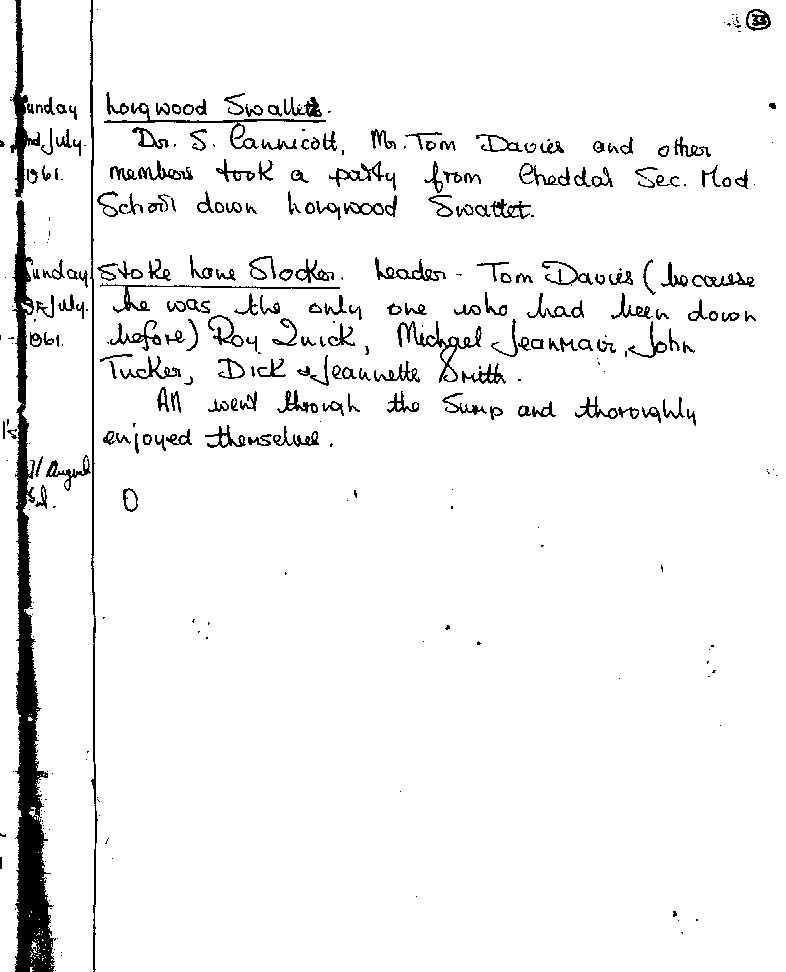 33
Sunday Longwood Swallet.
2nd July. Dr. S. Cannicott, Mr. Tom Davies and other
1961. members took a party from Cheddar Sec. Mod.
School down Longwood Swallet.
Sunday Stoke Lane Slocker. Leader - Tom Davies (because
July. he was the only one who had been down
1961. before) Roy Quick, Michael Jeanmair, John
Tucker, Dick & Jeannette Smith.
All went through the Sump and thoroughly
enjoyed themselves.
August
0